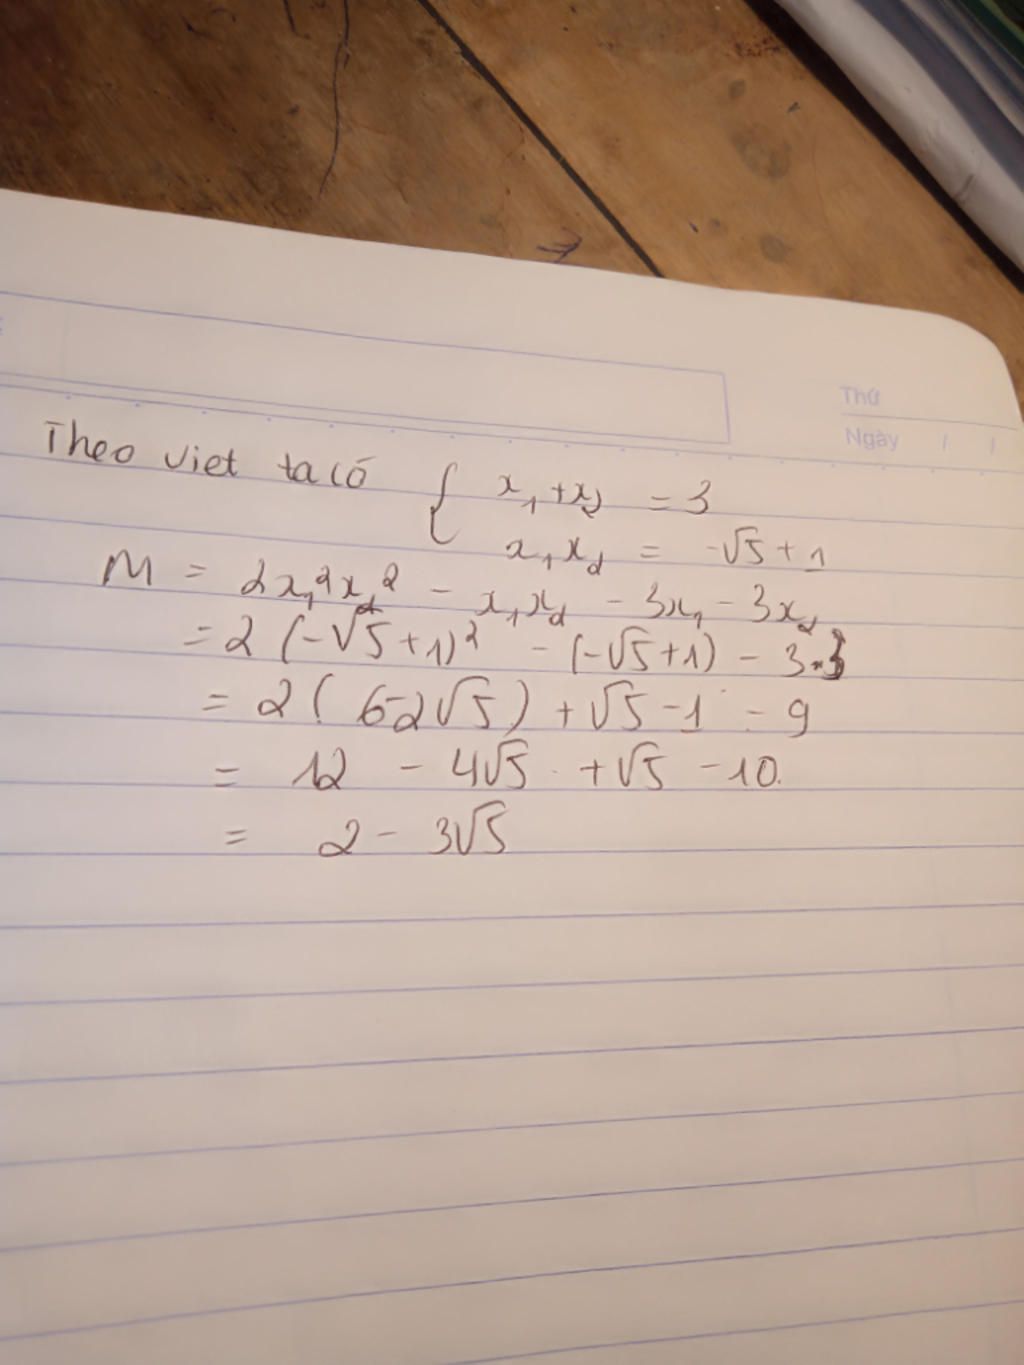 Thứ
Ngày / /
Theo viet ta có { x₁+x₂ = 3
x₁x₂ = -√5 + 1
M = 2x₁²x₂² - x₁x₂ - 3x₁ - 3x₂
= 2 (-√5+1)² - (-√5+1) - 3.3
= 2 ( 6-2√5) + √5 -1 - 9
= 12 - 4√5 + √5 - 10.
= 2 - 3√5